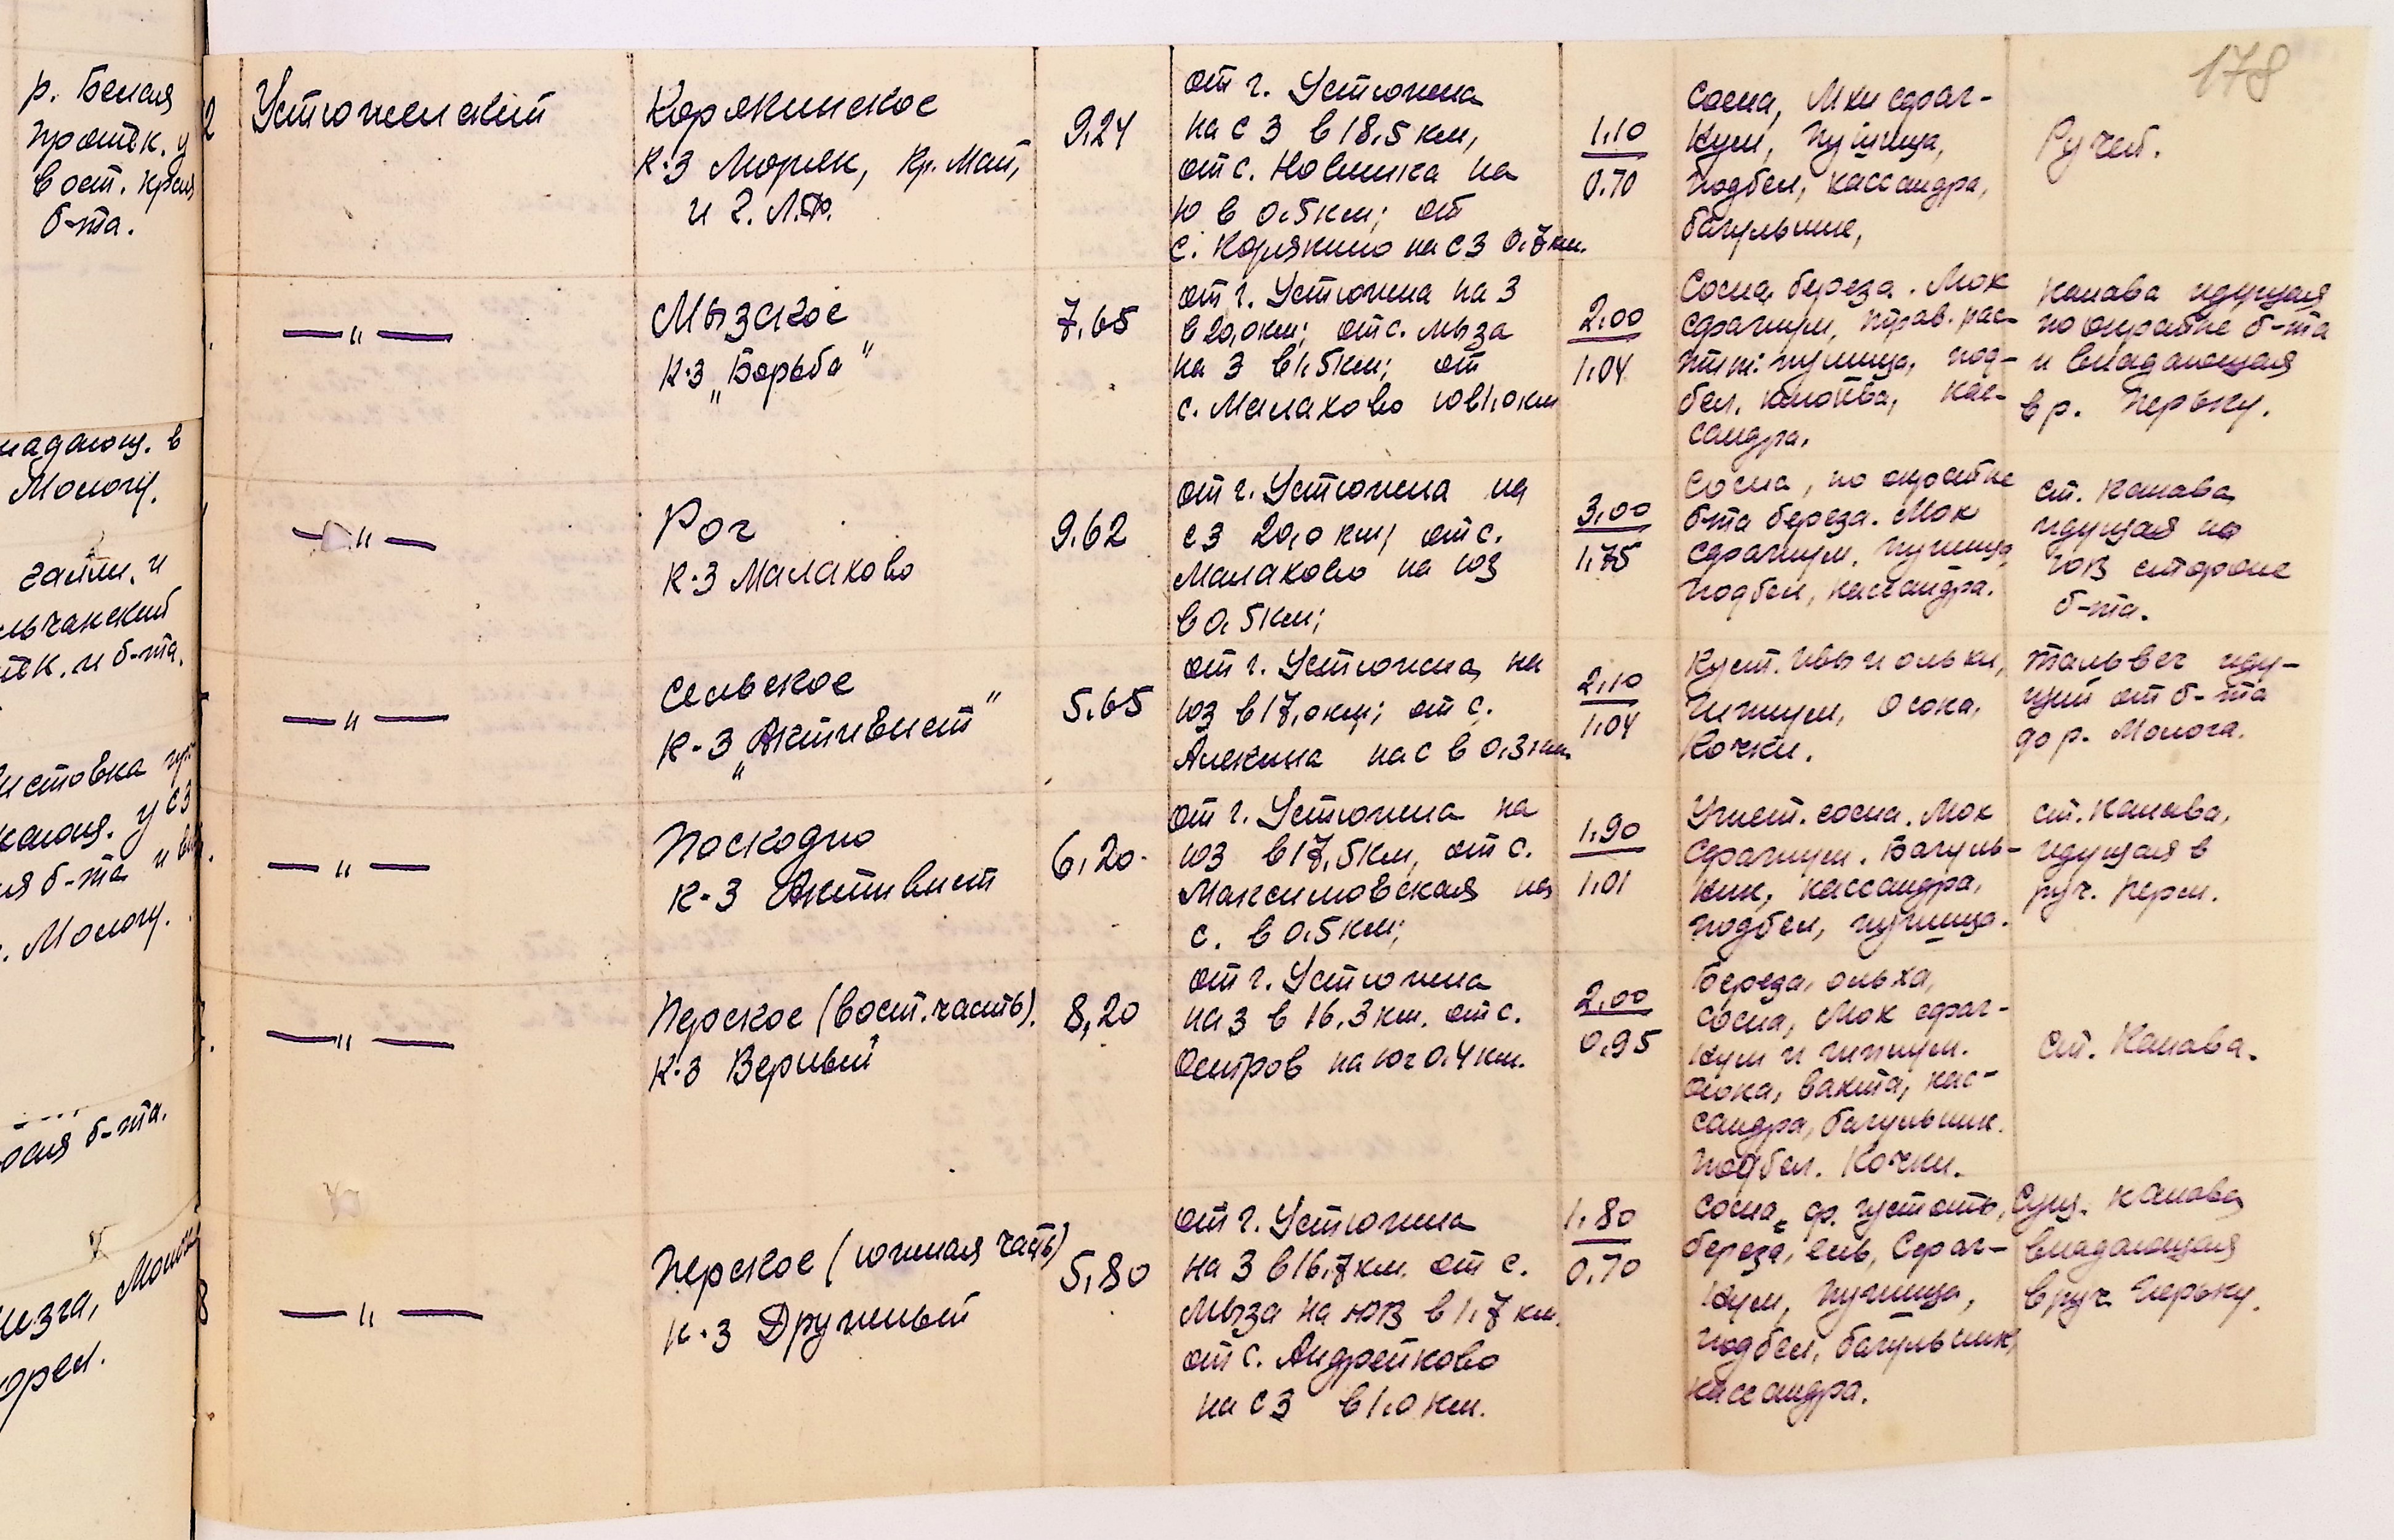 178
р. Белая
проттек. у
вост. края
б-та.
впадающ. в
Мологу.
галли. и
истовка
кающ. у СЗ
ия б-та и
Мологу.
б-та.
2
Устюженский
Корякинское
К-З Моряк, Кр. Май,
и Г. Л. Ф.
9,24
от г. Устюжна
на СЗ в 18.5 км,
от с. Новинка на
Ю в 0.5 км; от
с. Корякино на СЗ 0.7 км.
1.10
0.70
Сосна, Мхи сфаг-
нум, Пушица,
подбел, кассандра,
багульник,
Ручей.
— " —
Мызское
К-З „Борьба"
7,65
от г. Устюжна на З
в 20,0 км; от с. Мыза
на З в 1.5 км; от
с. Малахово Ю в 1.0 км
2.00
1.04
Сосна, береза. Мох
сфагнум, трав. рас-
тит: пушица, под-
бел, клюква, кас-
сандра.
Канава идущая
по окрайке б-та
и впадающая
в р. Перьку.
— " —
Рог
К-З Малахово
9.62
от г. Устюжна на
СЗ 20,0 км; от с.
Малахово на ЮЗ
в 0.5 км;
3.00
1.75
Сосна, по окрайке
б-та береза. Мох
сфагнум, пушица,
подбел, кассандра.
ст. канава,
идущая по
ЮВ стороне
б-та.
— " —
Сельское
К-З „Активист"
5.65
от г. Устюжна на
ЮЗ в 17,0 км; от с.
Алекина на С в 0.3 км.
2.10
1.04
Куст. Ивы и ольхи,
Гипнум, Осока,
Кочки.
тальвег иду-
щий от б-та
до р. Молога.
— " —
Поскодно
К-З Активист
6,20
от г. Устюжна на
ЮЗ в 17,5 км, от с.
Максимовская на
С. в 0.5 км;
1.90
1.01
Угнет. сосна. Мох
сфагнум. Багуль-
ник, кассандра,
подбел, пушица.
ст. канава,
идущая в
руч. Перм.
— " —
Перское (вост. часть).
К-З Верный
8,20
от г. Устюжна
на З в 16.3 км. от с.
Остров на Юг 0.4 км.
2.00
0.95
Береза, ольха,
сосна, Мох сфаг-
нум и гипнум.
Осока, вахта, кас-
сандра, багульник.
Подбел. Кочки.
Ст. Канава.
8
— " —
Перское (южная часть)
К-З Дружный
5,80
от г. Устюжна
на З в 16,7 км. от с.
Мыза на ЮЗ в 1.7 км.
от с. Андрейково
на СЗ в 1.0 км.
1.80
0.70
Сосна ср. густоты,
береза, ель, Сфаг-
нум, пушица,
подбел, багульник,
кассандра.
Сущ. канава
впадающая
в руч. Перьку.